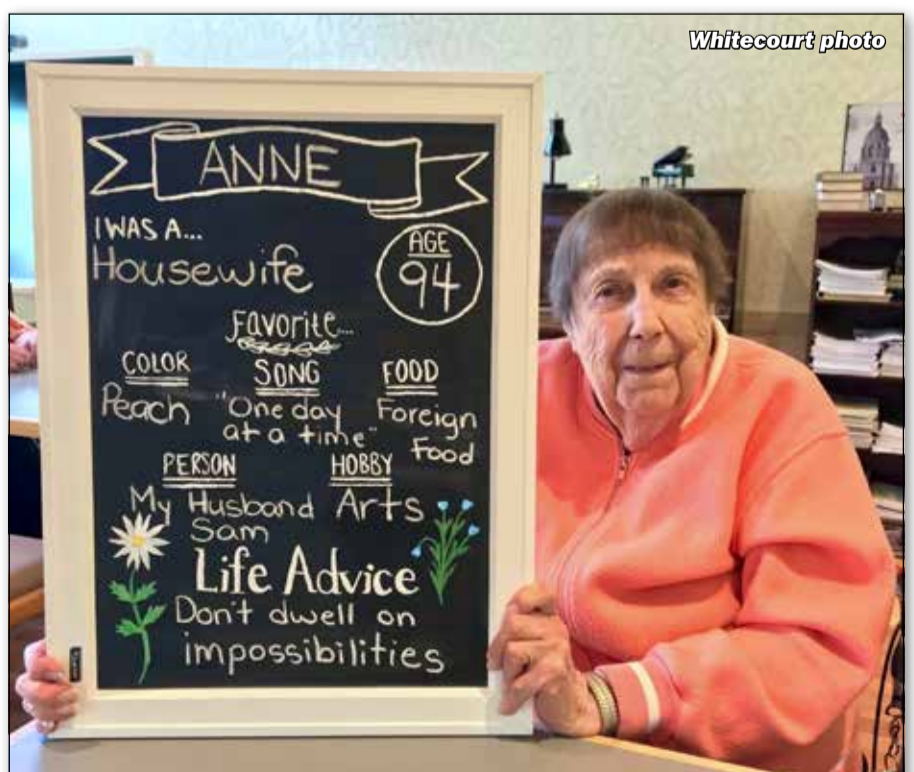 Whitecourt photo
ANNE
I WAS A...
Housewife
AGE
94
Favorite...
COLOR
Peach
SONG
"One day
at a time"
FOOD
Foreign
Food
PERSON
My Husband
Sam
HOBBY
Arts
Life Advice
Don't dwell on
impossibilities